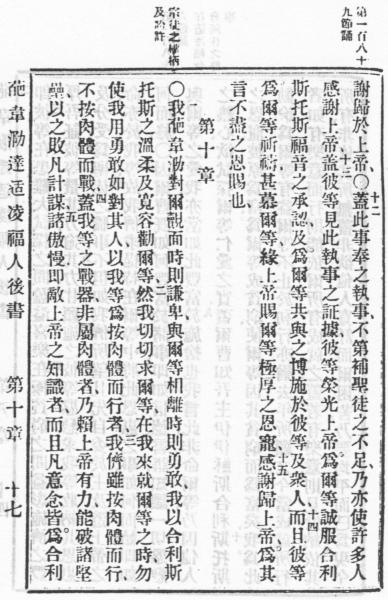 第一百八十
九節誦
宗徒之權柄
及訟許
謝歸於上帝○蓋此事奉之執事不第補聖徒之不足乃亦使許多人
十二
感謝上帝蓋彼等見此執事之証據彼等榮光上帝爲爾等誠服合利
十三
斯托斯福音之承認及爲爾等共與之博施於彼等及衆人而且彼等
十四
爲爾等祈禱甚慕爾等緣上帝賜爾等極厚之恩寵感謝歸上帝爲其
十五
言不盡之恩賜也
第十章
○我葩韋泐對爾覿面時則謙卑與爾等相離時則勇敢我以合利斯
一
托斯之溫柔及寬容勸爾等然我切切求爾等在我來就爾等之時勿
二
使我用勇敢如對其人以我等爲按肉體而行者我儕雖按肉體而行
三
不按肉體而戰蓋我等之戰器非屬肉體者乃賴上帝有力能破諸堅
四
壘以之敗凡計謀諸傲慢即敵上帝之知識者而且凡意念皆爲合利
五
葩韋泐達适凌福人後書 第十章 十七